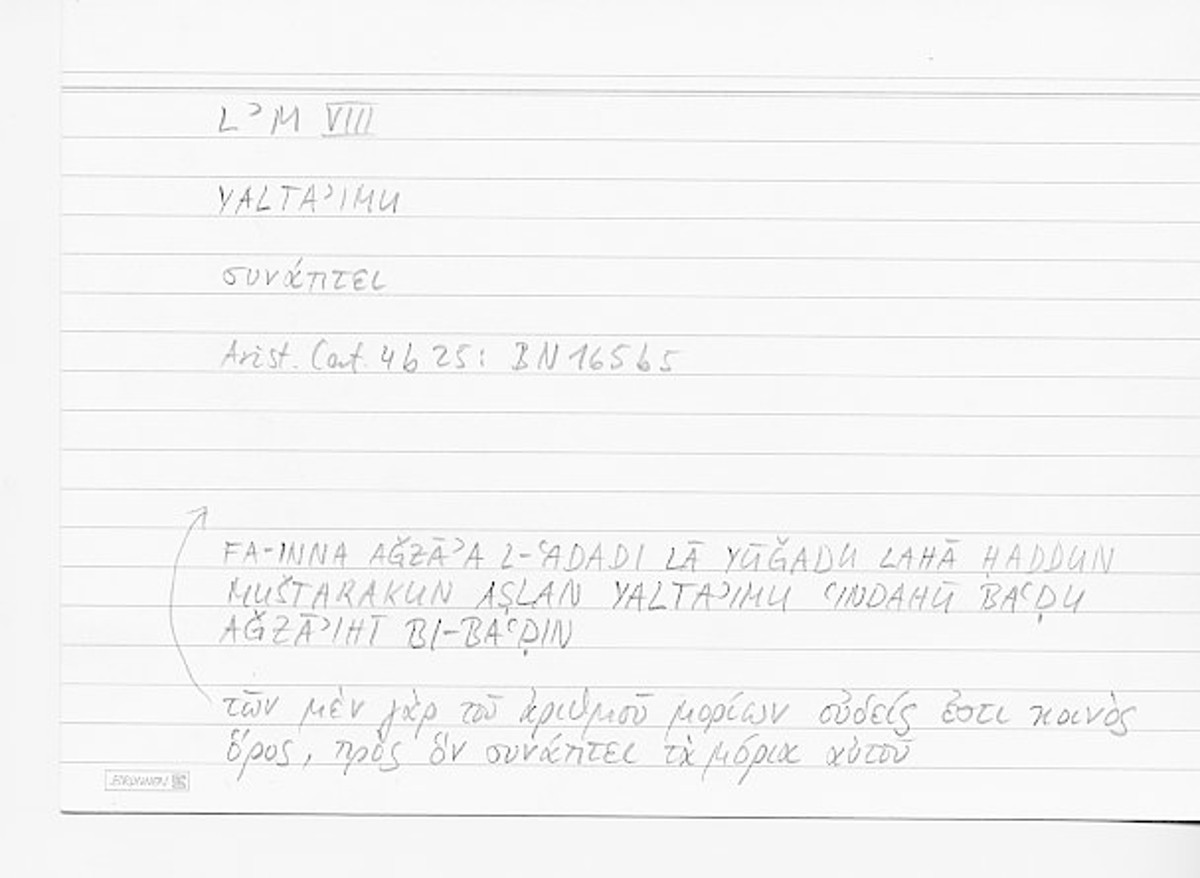 LʾM VIII
YALTAʾIMU
συνάπτει
Arist. Cat. 4b25: BN 165b5
FA-INNA AǦZĀʾA L-ʿADADI LĀ YŪǦADU LAHĀ ḤADDUN
MUŠTARAKUN AṢLAN YALTAʾIMU ʿINDAHŪ BAʿḌU
AǦZĀʾIHĪ BI-BAʿḌIN
τῶν μὲν γὰρ τοῦ ἀριθμοῦ μορίων οὐδείς ἐστι κοινὸς
ὅρος, πρὸς ὃν συνάπτει τὰ μόρια αὐτοῦ
BRUNNEN